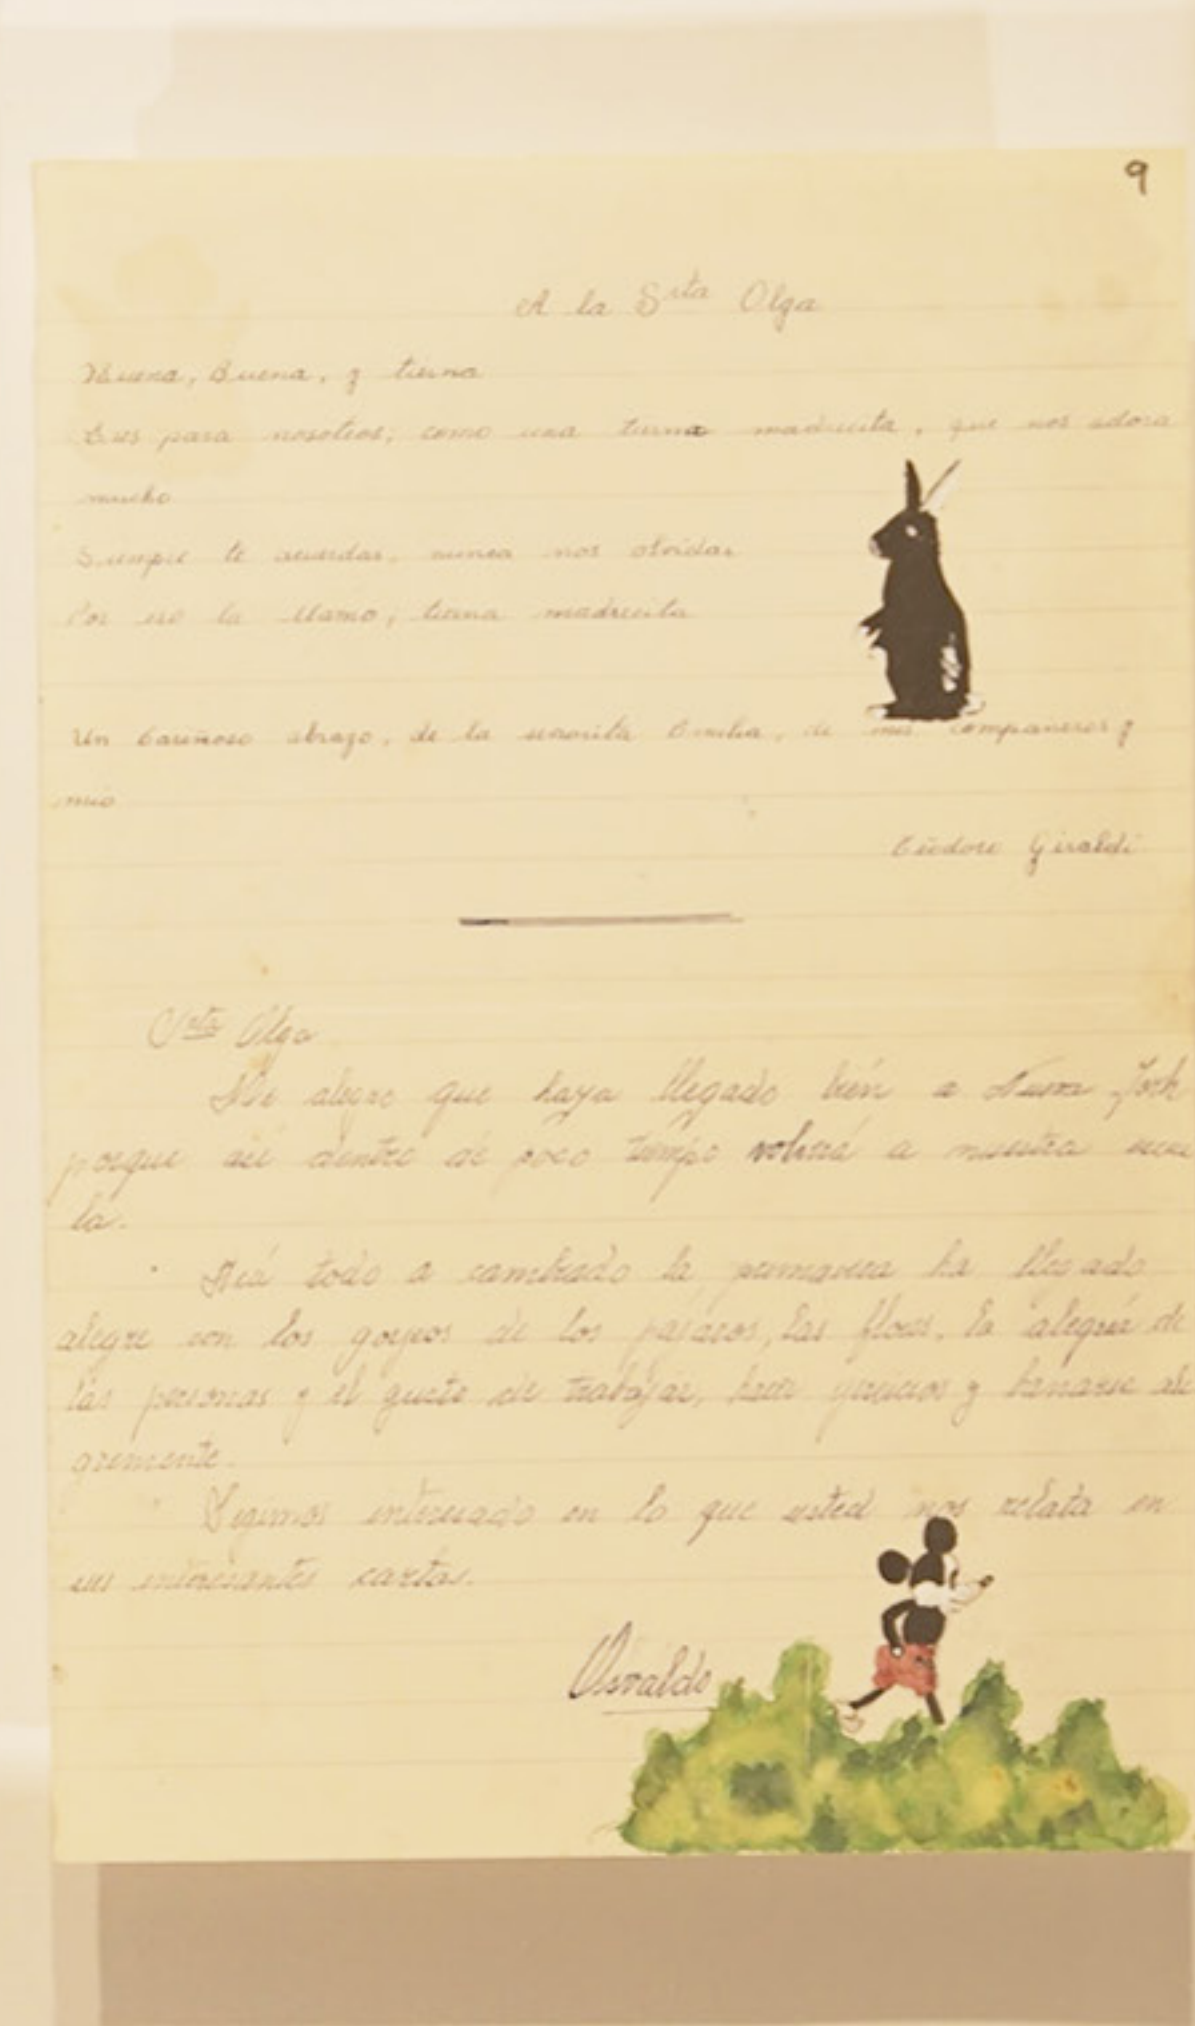 9
A la Srta Olga
Buena, Buena, y tierna
Eres para nosotros; como una tierna madrecita, que nos adora
mucho
Siempre te acuerdas, nunca nos olvidas
Por eso la llamo; tierna madrecita
Un Cariñoso abrazo, de la señorita Emilia, de mis compañeros y
mio
Teodoro Giraldi
Srta Olga
Me alegro que haya llegado bién a Nueva York
porque asi dentro de poco tiempo volverá a nuestra escue
la.
Acá todo a cambiado la primavera ha llegado
alegre con los gorjeos de los pájaros, las flores, la alegria de
las personas y el gusto de trabajar, hacer ejercicios y bañarse ale
gremente.
Segimos interesado en lo que usted nos relata en
sus interesantes cartas.
Osvaldo